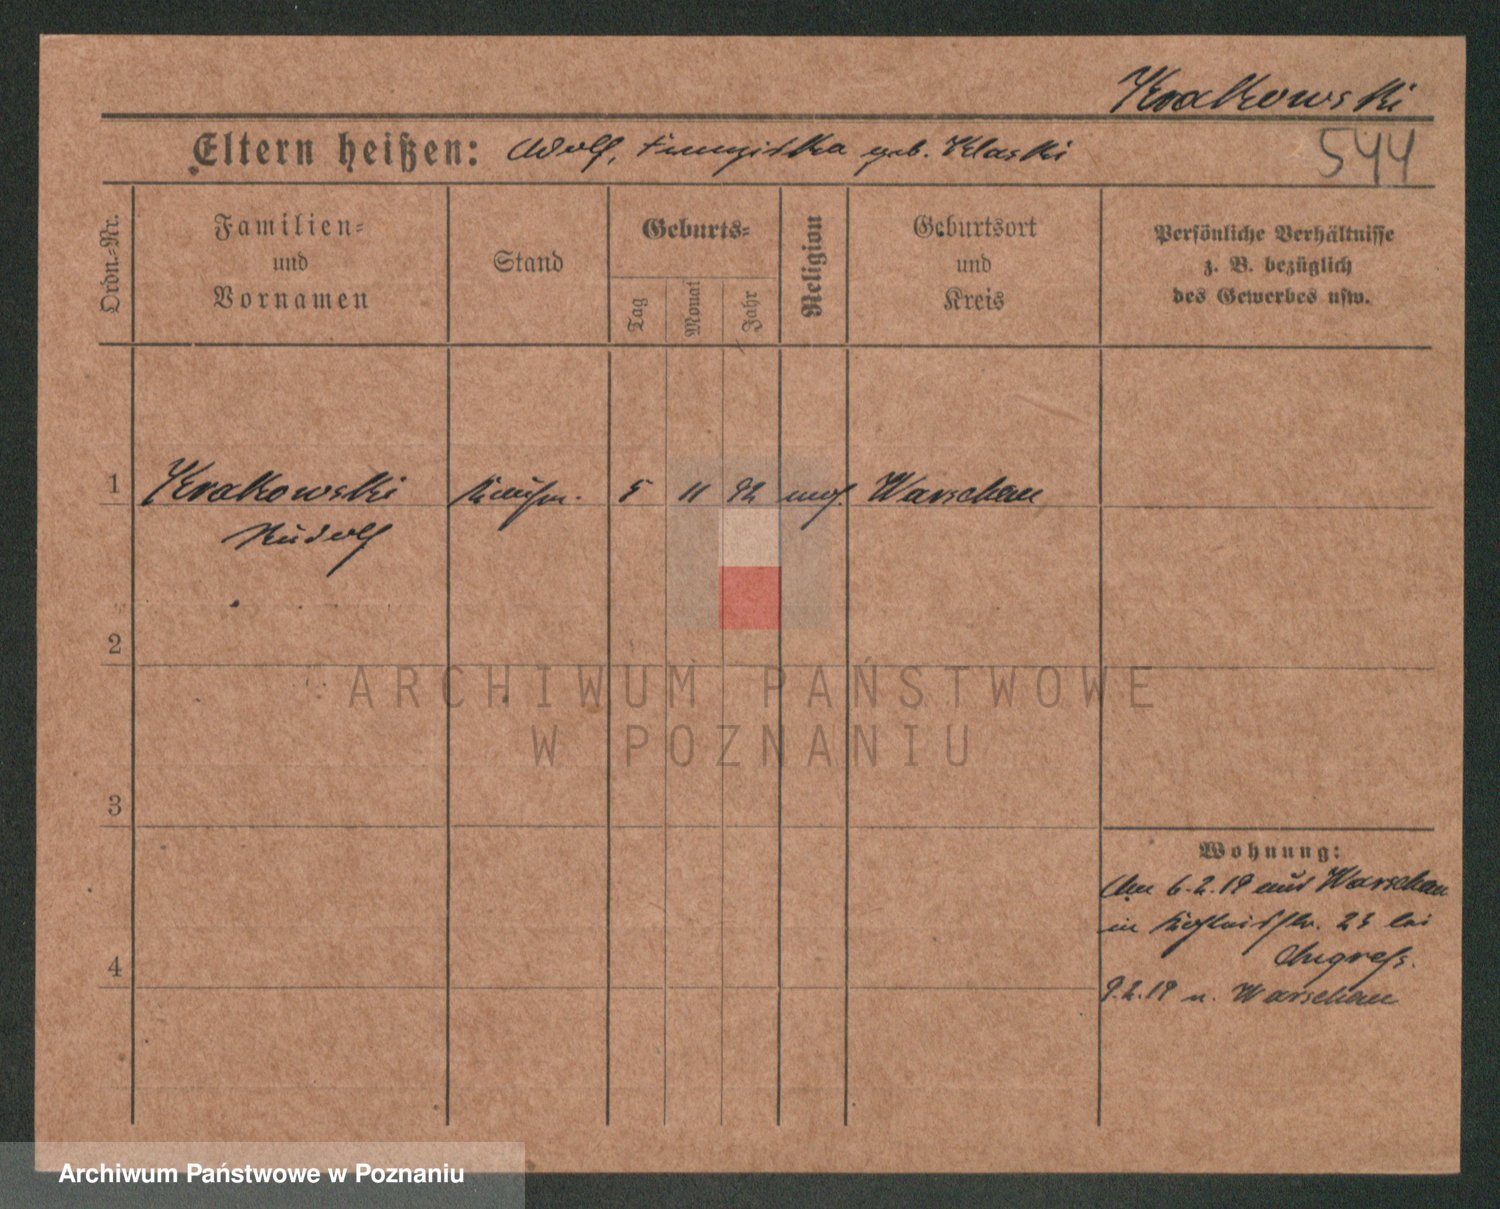 Krakowski
Eltern heißen: Adolf, Franziska geb. Klaski
544
Ordn.-Nr.
Familien-
und
Vornamen
Stand
Geburts-
Tag
Monat
Jahr
Religion
Geburtsort
und
Kreis
Persönliche Verhältnisse
z. B. bezüglich
des Gewerbes usw.
1 Krakowski Kaufm. 5 11 92 mos. Warschau
Rudolf
2
ARCHIWUM PAŃSTWOWE
W POZNANIU
3
Wohnung:
Am 6.2.19 aus Warschau
in 23 bei
4
9.2.19 n. Warschau
Archiwum Państwowe w Poznaniu